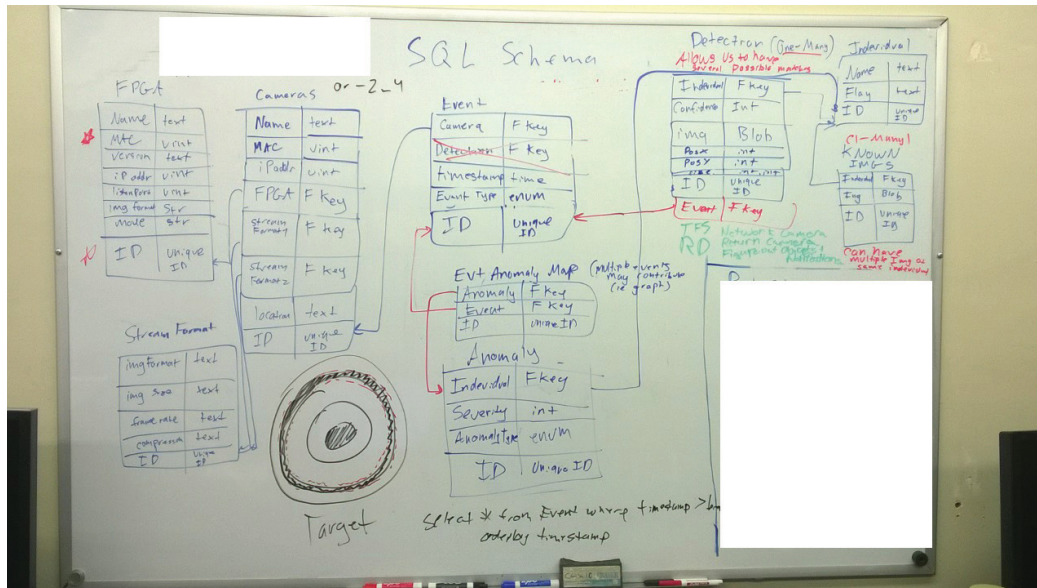 SQL Schema
or -2_4
FPGA
Name text
MAC uint
version text
iP addr uint
listenPort uint
img format Str
mode str
ID unique ID
Cameras
Name text
MAC uint
iPaddr uint
FPGA F key
Stream Format1 F key
Stream Format2 F key
location text
ID unique ID
Stream Format
img format text
img size text
frame rate text
text
ID unique ID
Event
Camera F key
Detection F key
timestamp time
Event Type enum
ID unique ID
Evt Anomaly Map (multiple events
may contribute
(ie graph)
Anomaly F key
Event F key
ID Unique ID
Anomaly
Individual F key
Severity int
AnomalyType enum
ID Unique ID
Detection (One-Many)
Allows us to have
several possible matches
Individual F key
Confidence Int
img Blob
PosX int
PosY int
ID unique ID
Event F key
Individual
Name text
Flag text
ID unique ID
(1-Many)
KNOWN
IMGS
Individual F key
Img Blob
ID Unique ID
can have
multiple Img of
same individual
TFS Network Camera
RD Return Camera
Target
Select * from Event where timestamp >
orderby timestamp